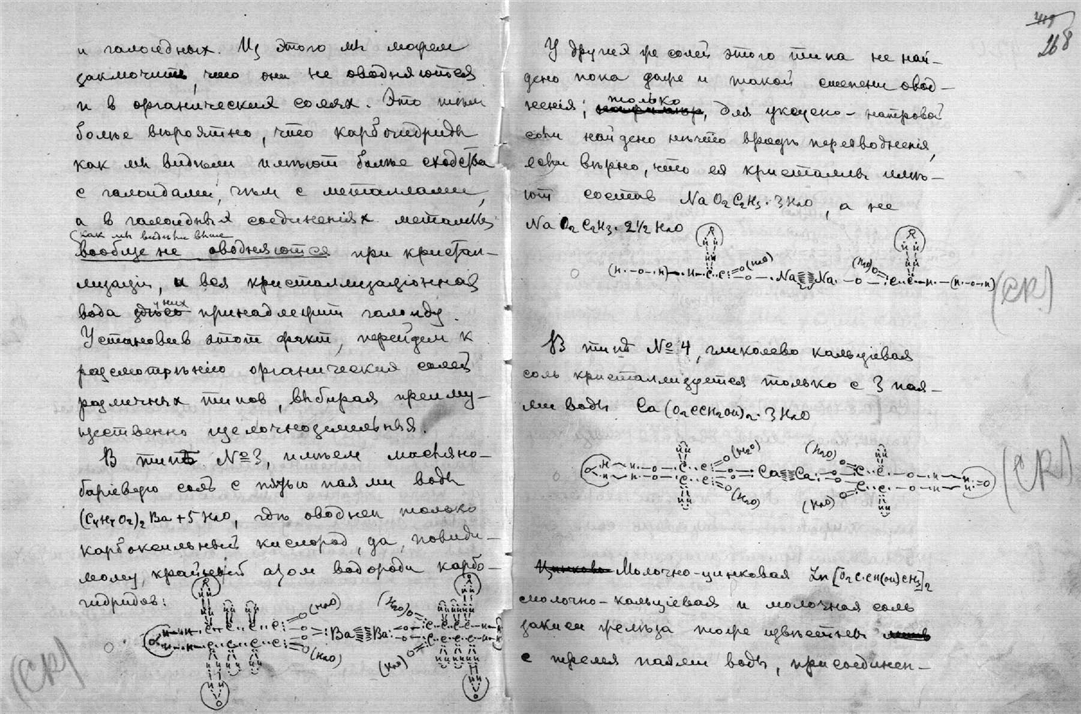 и галоидныхъ. Изъ этого мы можемъ
заключить, что они не оводняются
и в органическихъ соляхъ. Это тѣмъ
болѣе вѣроятно, что карбогидриды
какъ мы видѣли имѣютъ болѣе сходства
с галоидами, чѣмъ с металлами,
а в галоидныхъ соединеніяхъ металлы,
какъ мы видѣли выше
вообще не оводняются при кристал-
лизаціи, и вся кристаллизаціонная
вода у нихъ принадлежитъ галоиду.
Установивъ этотъ фактъ, перейдемъ к
разсмотрѣнію органическихъ солей
различныхъ типовъ выбирая преиму-
щественно щелочноземельныя.
В типѣ №3, имѣемъ масляно-
баріевую соль с пятью паями воды
(C4H7O2)2 Ba + 5H2O, гдѣ оводненъ только
карбоксильный кислородъ, да, повиди-
мому, крайній атомъ водорода карбо-
гидридовъ:
(СК)
268
У другихъ же солей этого типа не най-
дено пока даже и такой степени овод-
ненія; только для уксусно-натровой
соли найдено нѣчто вродѣ переводненія,
если вѣрно, что ея кристаллы имѣ-
ютъ составъ NaO2C2H3·3H2O, а не
NaO2C2H3·2½H2O
(СК)
В типѣ №4, гликолево кальціевая
соль кристаллизуется только с 3 пая-
ми воды Ca(O2CCH2OH)2·3H2O
(СК)
Молочно-цинковая Zn[O2C·CH(OH)CH3]2
молочно-кальціевая и молочная соль
закиси желѣза тоже извѣстны
с тремя паями воды, присоединен-